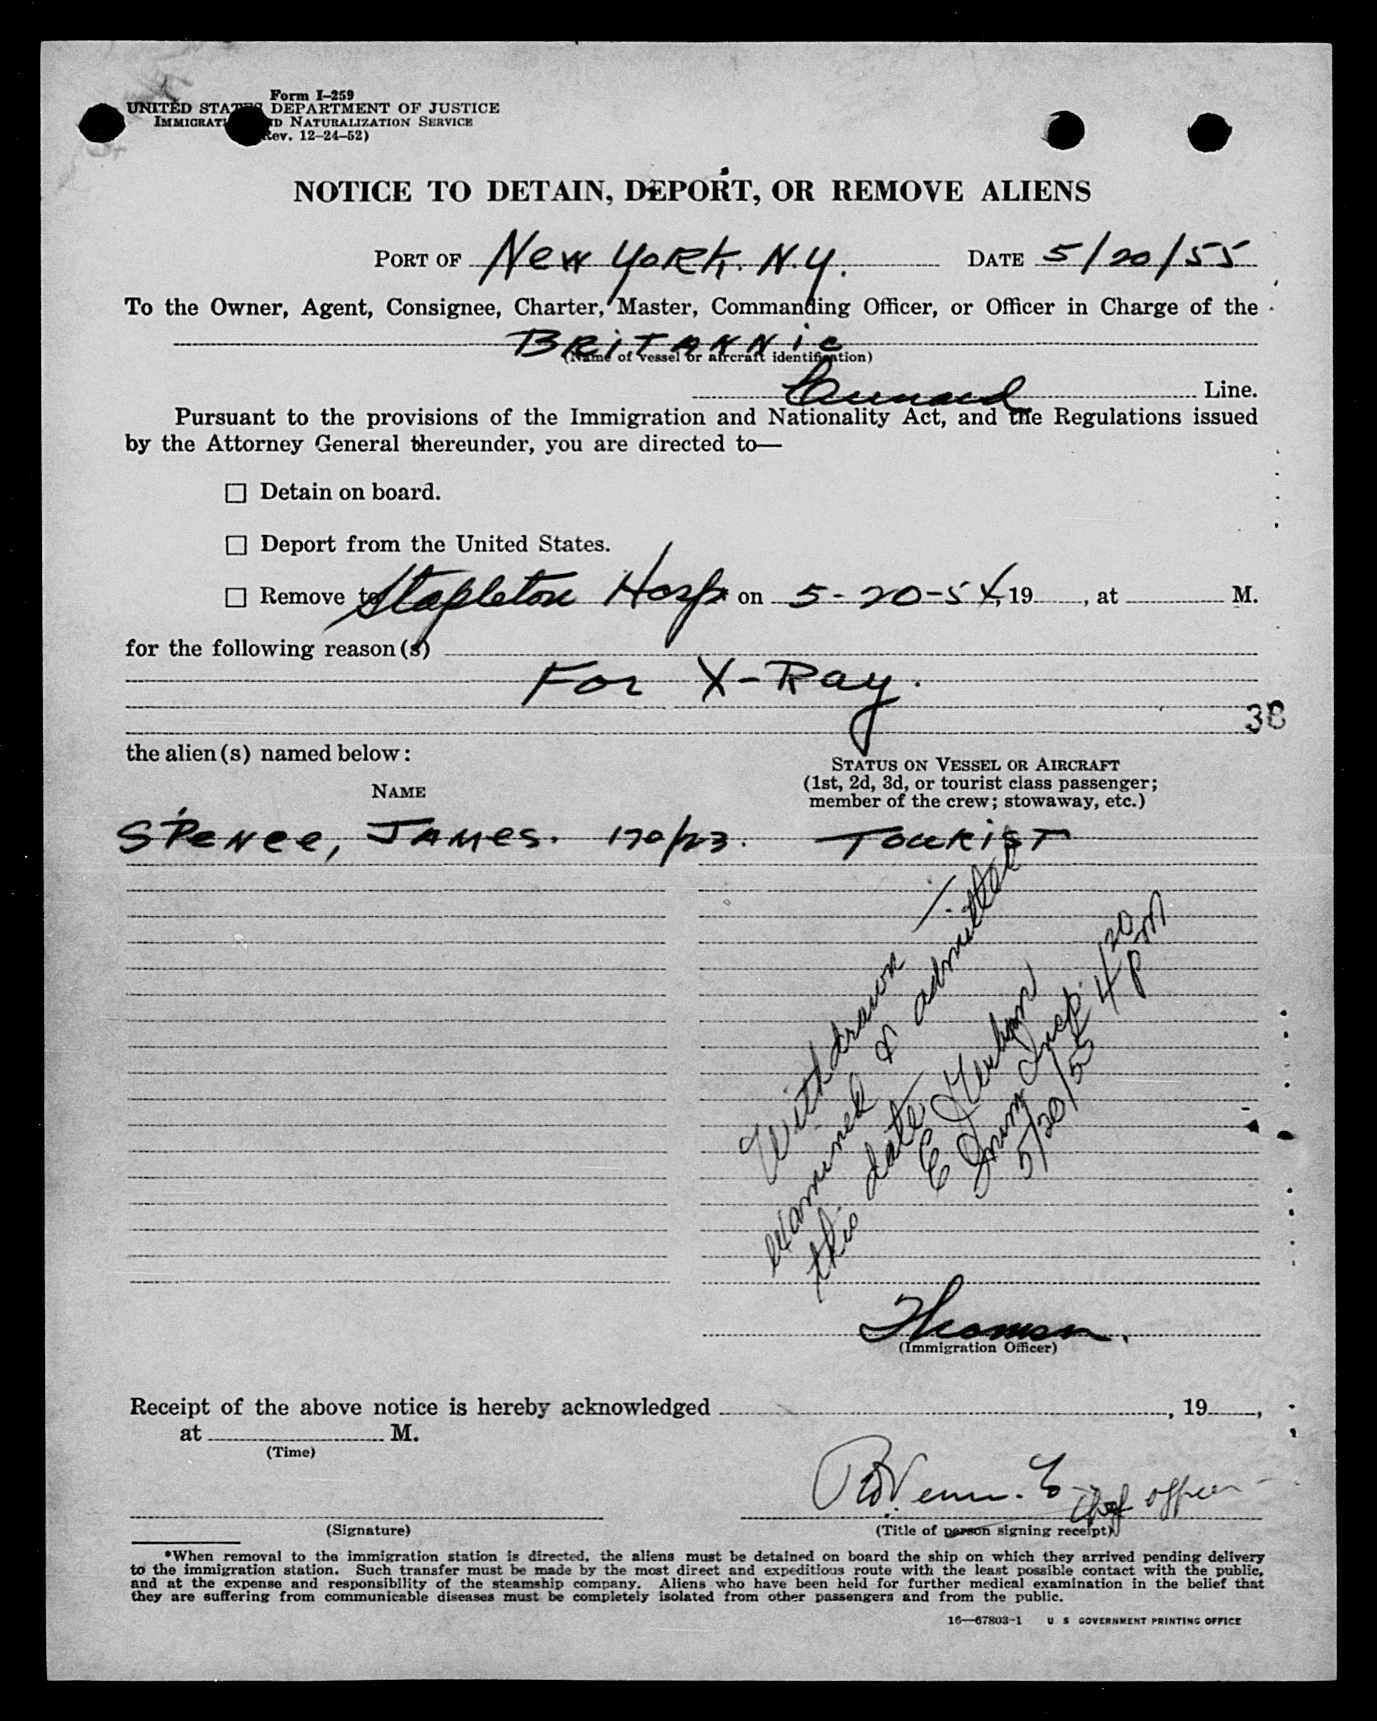 Form I-259
UNITED STATES DEPARTMENT OF JUSTICE
IMMIGRATION AND NATURALIZATION SERVICE
(Rev. 12-24-52)
NOTICE TO DETAIN, DEPORT, OR REMOVE ALIENS
PORT OF New York, N.Y. DATE 5/20/55
To the Owner, Agent, Consignee, Charter, Master, Commanding Officer, or Officer in Charge of the
BRITANNIC
(Name of vessel or aircraft identification)
Cunard Line.
Pursuant to the provisions of the Immigration and Nationality Act, and the Regulations issued
by the Attorney General thereunder, you are directed to—
☐ Detain on board.
☐ Deport from the United States.
☐ Remove to Stapleton Hosp. on 5-20-54, 19 , at M.
for the following reason(s)
For X-Ray.
38
the alien(s) named below:
STATUS ON VESSEL OR AIRCRAFT
(1st, 2d, 3d, or tourist class passenger;
member of the crew; stowaway, etc.)
NAME
SPENCE, JAMES. 170/23. TOURIST
Withdrawn —
examined & admitted
this date
E
Imm Insp. 4/20 PM
5/20/55
Thomson.
(Immigration Officer)
Receipt of the above notice is hereby acknowledged , 19 ,
at M.
(Time)
Chief officer
(Signature)
(Title of person signing receipt)
*When removal to the immigration station is directed, the aliens must be detained on board the ship on which they arrived pending delivery
to the immigration station. Such transfer must be made by the most direct and expeditious route with the least possible contact with the public,
and at the expense and responsibility of the steamship company. Aliens who have been held for further medical examination in the belief that
they are suffering from communicable diseases must be completely isolated from other passengers and from the public.
16—67803-1 U. S. GOVERNMENT PRINTING OFFICE